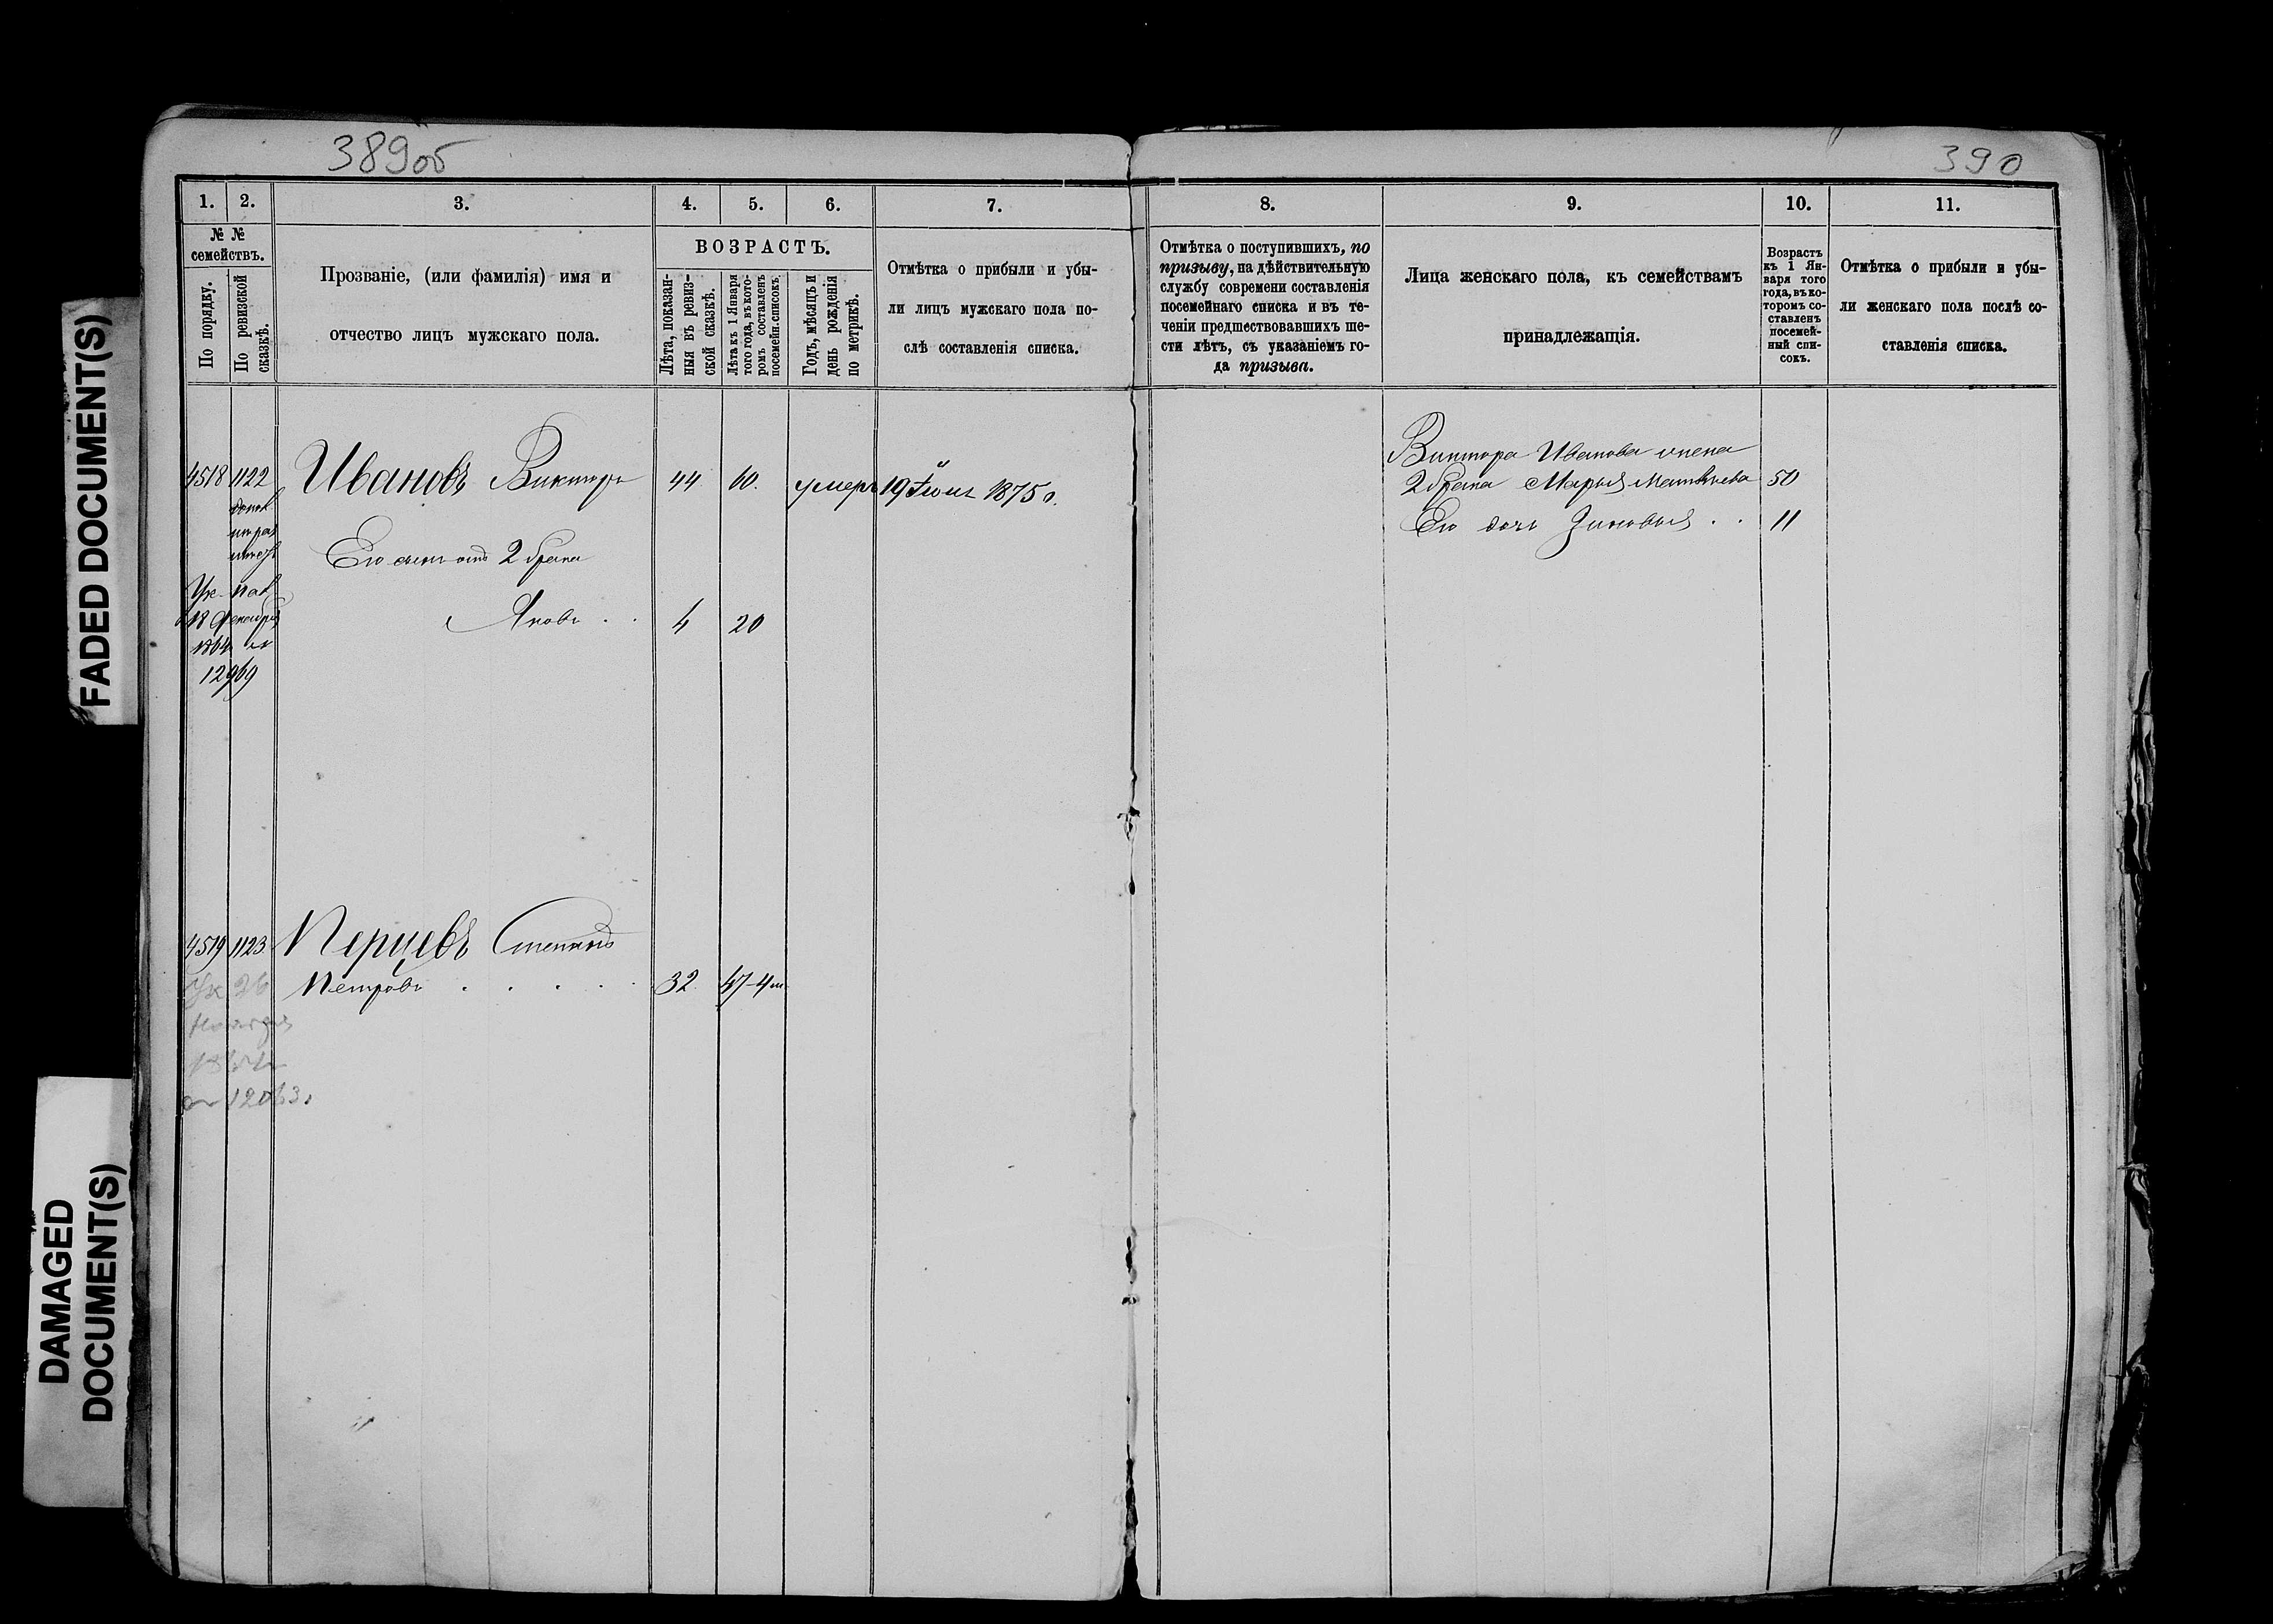 389об
390
1. 2. 3. 4. 5. 6. 7. 8. 9. 10. 11.
№ №
семействъ.
По порядку.
По ревизской
сказкѣ.
Прозваніе, (или фамилія) имя и
отчество лицъ мужскаго пола.
ВОЗРАСТЪ.
Лѣта, показан-
ныя въ ревиз-
ской сказкѣ.
Лѣта къ 1 Января
того года, въ кото-
ромъ составленъ
посемейн. списокъ.
Годъ, мѣсяцъ и
день рожденія
по метрикѣ.
Отмѣтка о прибыли и убы-
ли лицъ мужскаго пола по-
слѣ составленія списка.
Отмѣтка о поступившихъ, по
призыву, на дѣйствительную
службу современи составленія
посемейнаго списка и въ те-
ченіи предшествовавшихъ ше-
сти лѣтъ, съ указаніемъ го-
да призыва.
Лица женскаго пола, къ семействамъ
принадлежащія.
Возрастъ
къ 1 Ян-
варя того
года, въ ко-
торомъ со-
ставленъ
посемей-
ный спи-
сокъ.
Отмѣтка о прибыли и убы-
ли женскаго пола послѣ со-
ставленія списка.
4518 1122 Ивановъ Викторъ 44 60. умеръ 19 Іюля 1875 г.
Его сынъ отъ 2 брака
Яковъ . . 4 20
Ук. Пал.
18 Декабря
1864
12969
Виктора Иванова жена
2 брака Марья Матвѣева 50
Его дочь Зиновья . . 11
4519 1123. Перцевъ Степанъ
Петровъ . . . . . 32. 47-4м
Ук 26
12063.
FADED DOCUMENT(S)
DAMAGED
DOCUMENT(S)